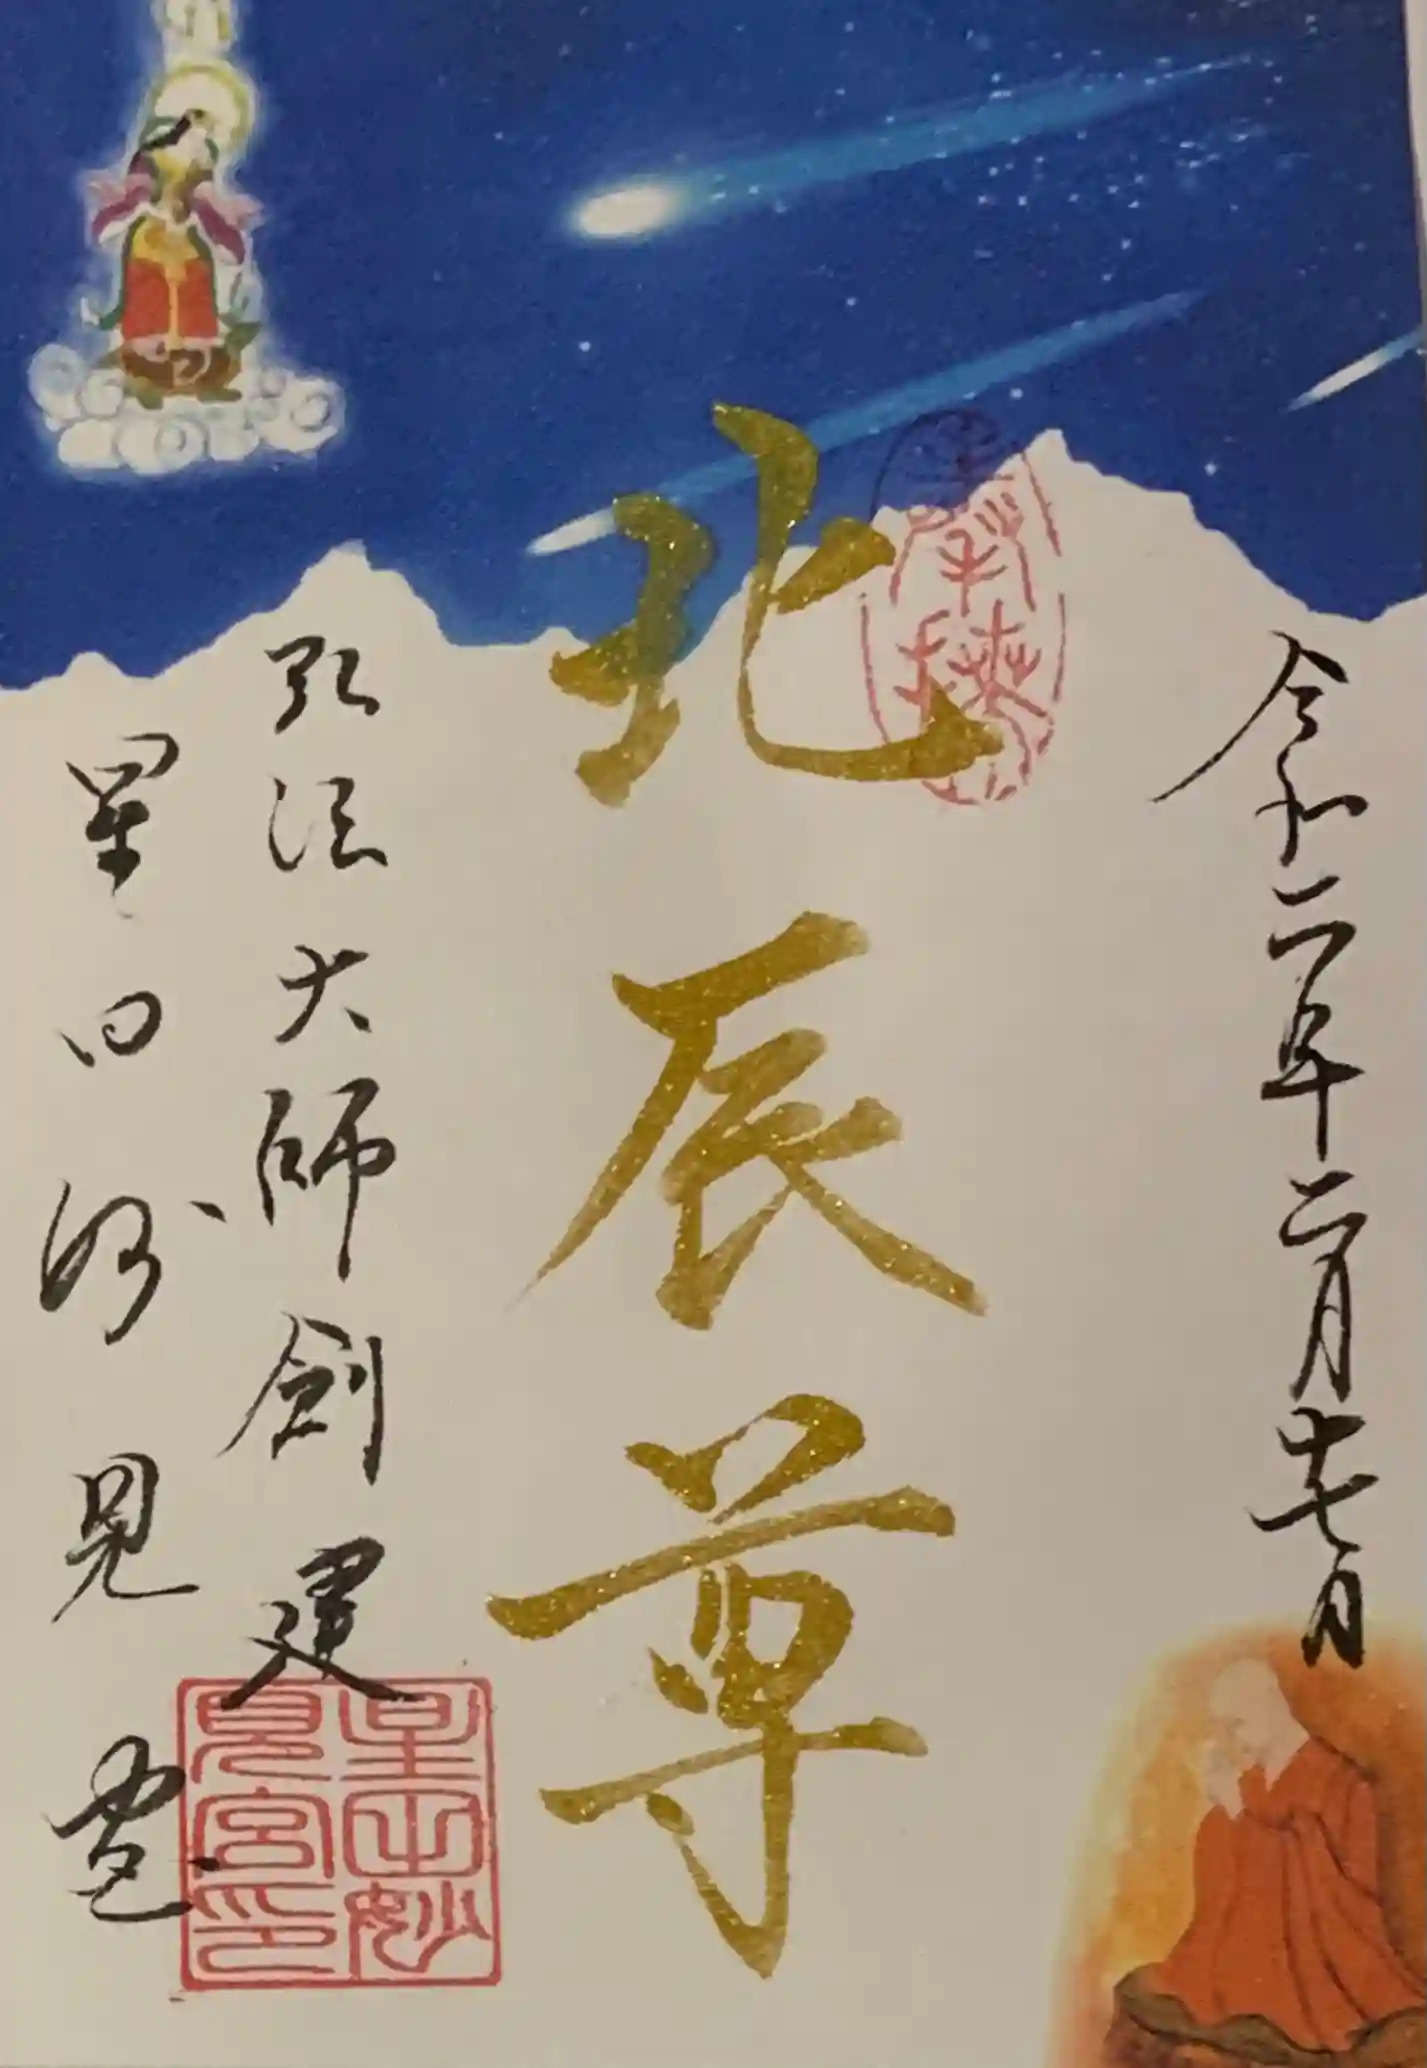 令和二年二月十七日
奉拝
北辰尊
弘法大師創建
星田妙見宮
星田妙
見宮印